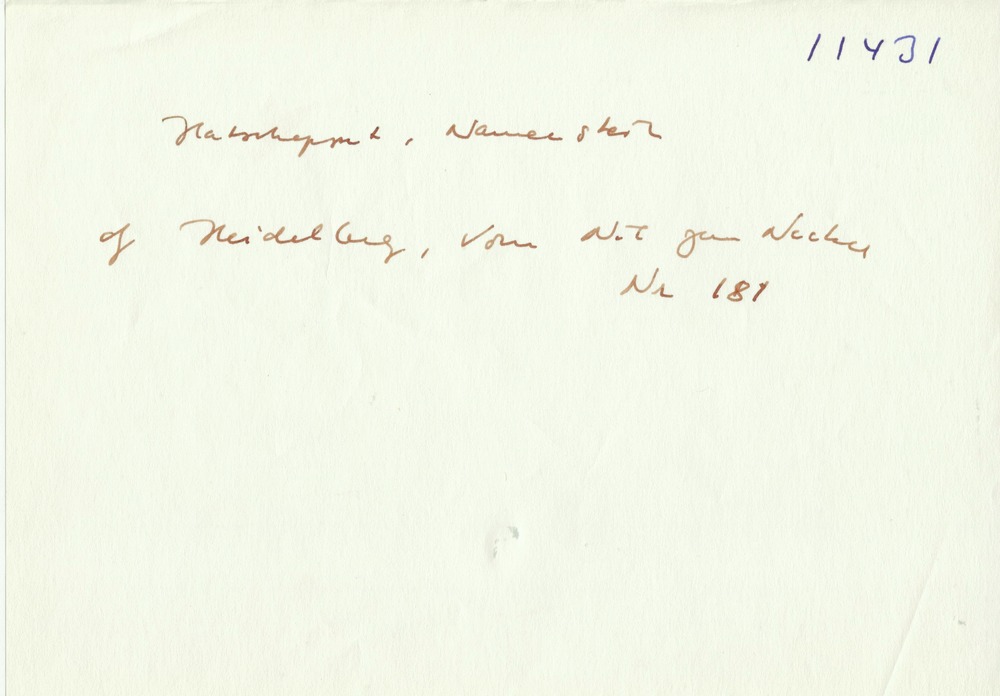 11431
Hatschepsut, Namenstein
cf Heidelberg, Vom Nil zum Neckar
Nr 181